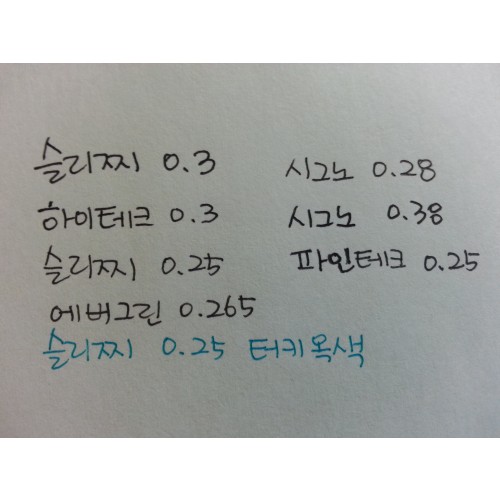 슬리찌 0.3
하이테크 0.3
슬리찌 0.25
에버그린 0.265
슬리찌 0.25 터키옥색
시그노 0.28
시그노 0.38
파인테크 0.25